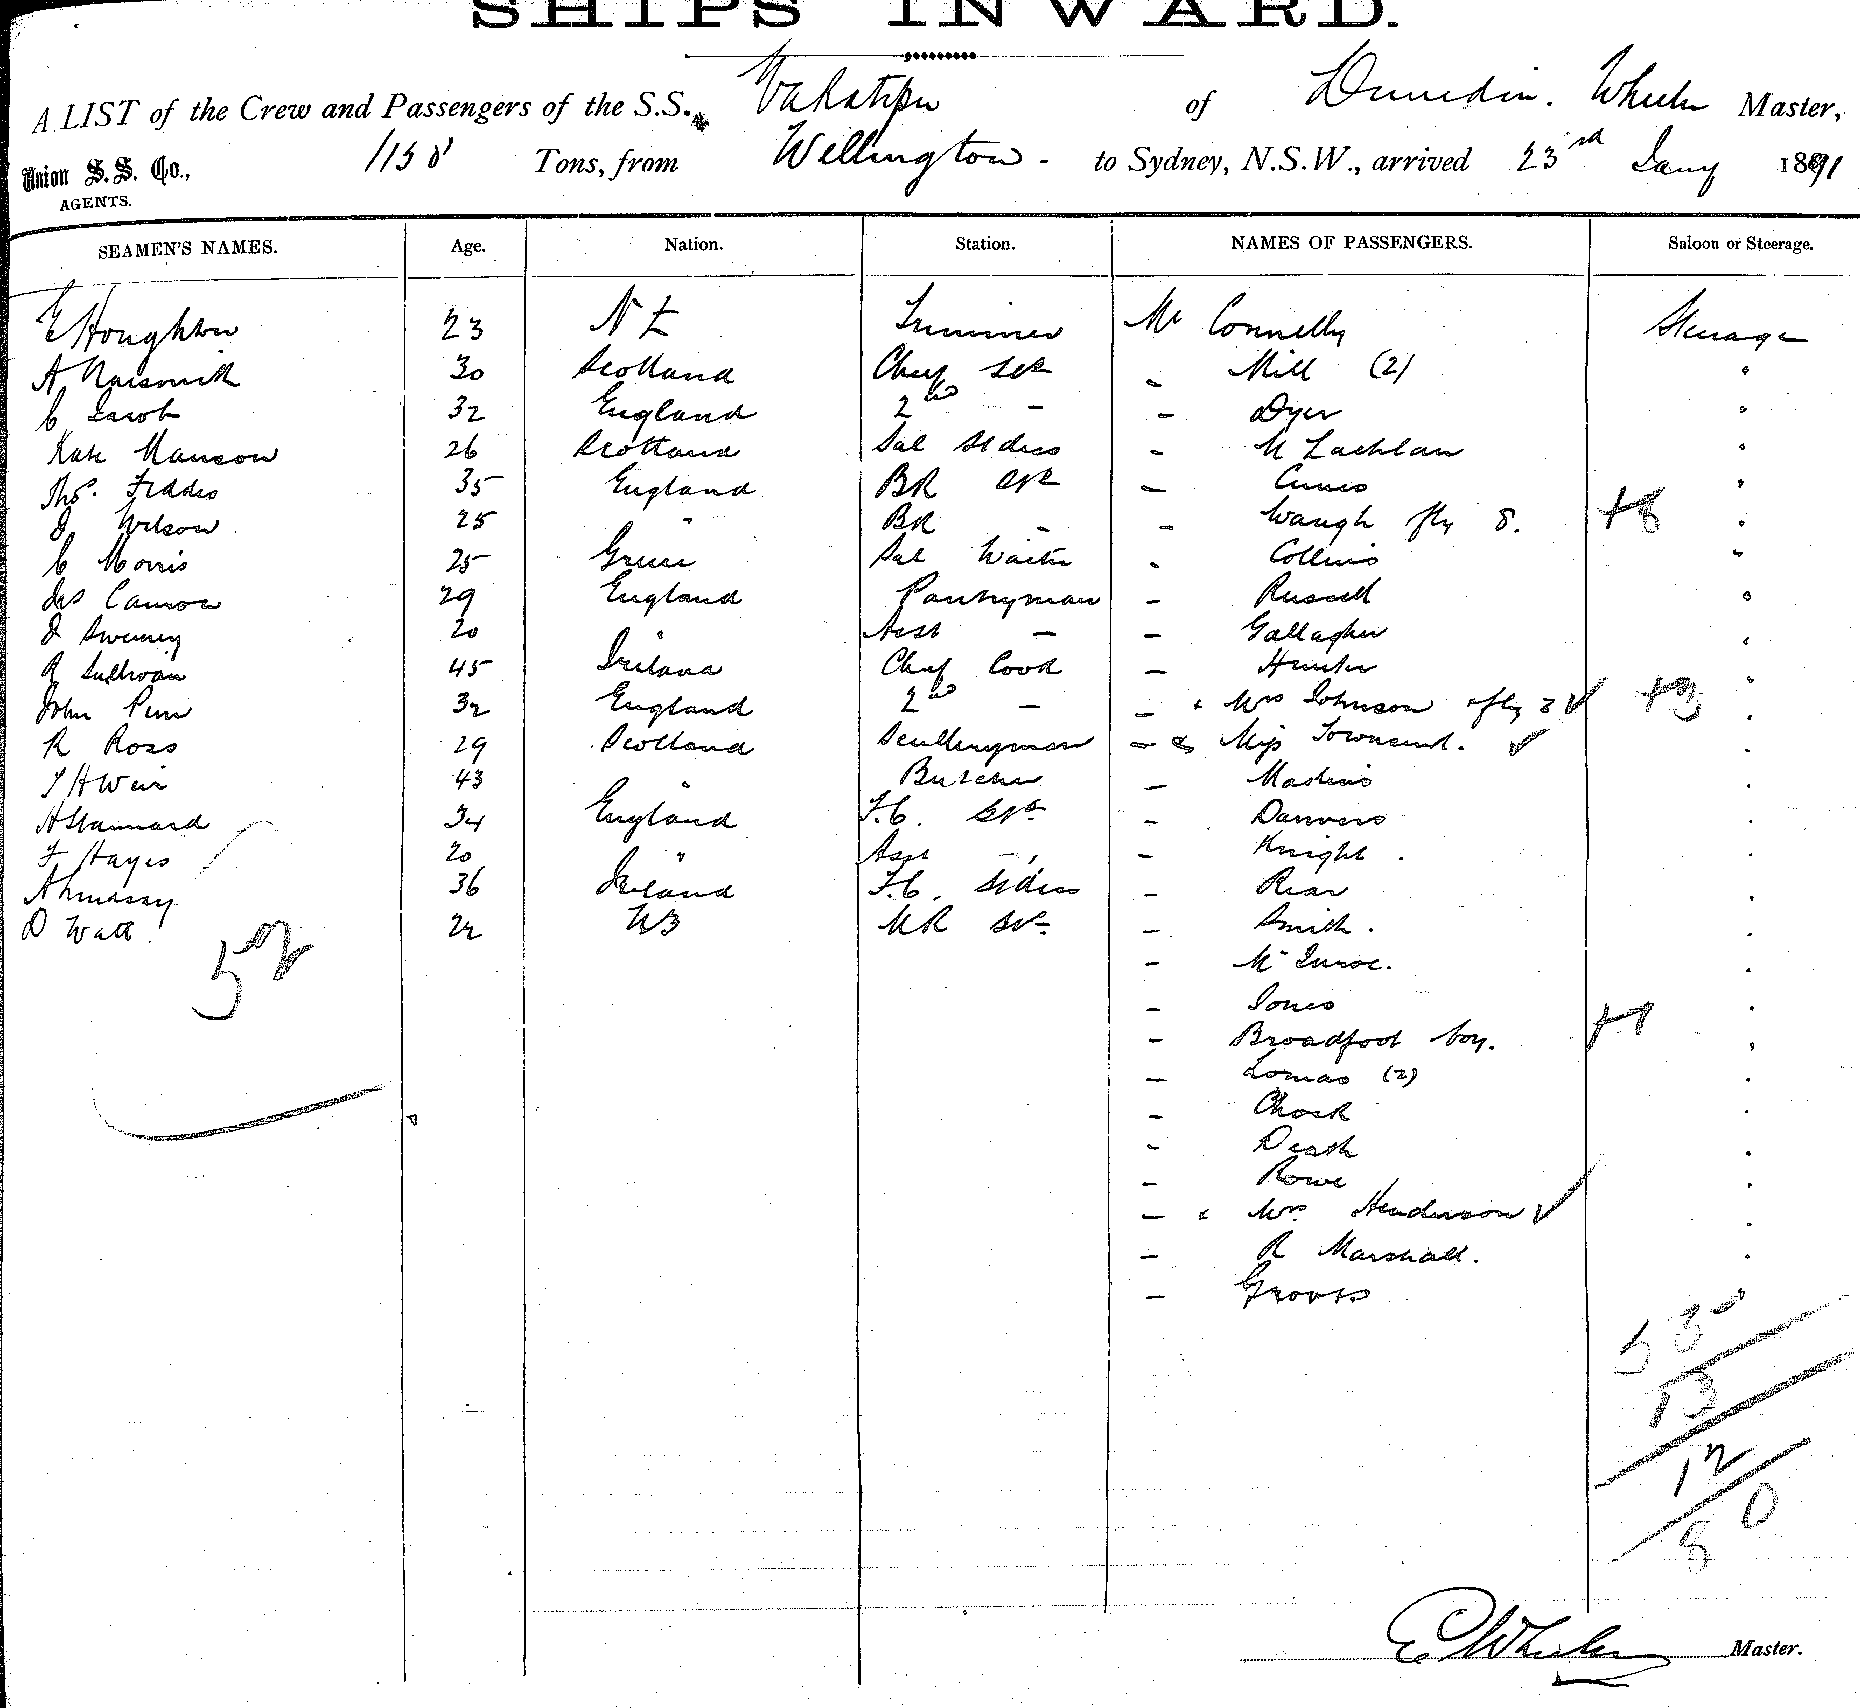 SHIPS INWARD.
A LIST of the Crew and Passengers of the S.S. Wakatipu of Dunedin. Wheeler Master,
Union S. S. Co., AGENTS. 1158 Tons, from Wellington - to Sydney, N.S.W., arrived 23rd Jany 1891
SEAMEN'S NAMES. Age. Nation. Station. NAMES OF PASSENGERS. Saloon or Steerage.
E Houghton 23 N Z Trimmer Mr Connelly Steerage
A Naismith 30 Scotland Chief Std " Mill (2) "
C Jacob 32 England 2nd - - Dyer "
Kate Manson 26 Scotland Sal Stdess - McLachlan "
Thos. Fiddes 35 England BR - "
J Wilson 25 " BR - - Waugh fly 8. +8 "
C Morris 25 Greece Sal Waiter - Collins "
Jas Cameron 29 England Pantryman - Russell "
J Sweeney 20 " Asst - - Gallagher "
R Sullivan 45 Ireland Chief Cook - Hunter "
John Penn 32 England 2nd - - " Mrs Johnson & fly 3 ✓ +3 "
R Ross 29 Scotland Sculleryman - & Miss Townsend. ✓ "
J H Weir 43 " Butcher - "
A Stannard 34 England F.C. Std - Danvers "
F Hayes 20 " Asst - - Knight . "
A Lindsay 36 Ireland F.C. Stdess - "
D Watt 22 NZ MR Std - Smith . "
- "
52 - Jones "
- Broadfoot boy. +1 "
- Lomas (2) "
- "
- Death "
- Rowe "
- " Mrs Henderson ✓ "
- R Marshall. "
- Groves
53
13
12
80
E Wheeler Master.